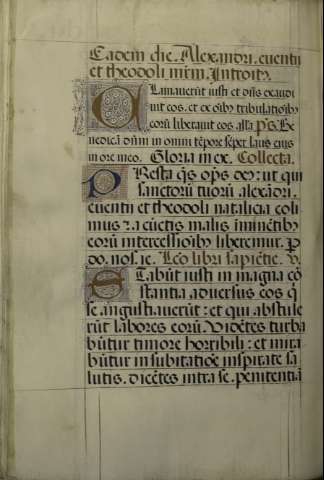 Eadem die. Alexandri. euentii
et theodoli mr̄m. Introitꝰ.
Clamauerūt iusti et dn̄s exaudi
uit eos. et ex oībꝰ tribulatiōibꝰ
eorū liberauit eos. alla. p̄s. Be
nedicā dn̄m in omni tēpore: sēper laus eius
in ore meo. Gloria in ex. Collecta.
Presta q̄s op̄s deꝰ: ut qui
sanctorū tuorū alexādri.
euentii et theodoli natalicia coli
mus: a cūctis malis imīnētibꝰ
eorū intercessiōibꝰ liberemur. p̄
do. nos. ie. Lc̄o libri sapiētie. v.
Stabūt iusti in magna cō
stantia aduersus eos q̄
se angustiauerūt: et qui abstule
rūt labores eorū. Vidētes turba
būtur timore horribili: et mira
būtur in subitatiōe insperate sa
lutis. dicētes intra se. penitentiā